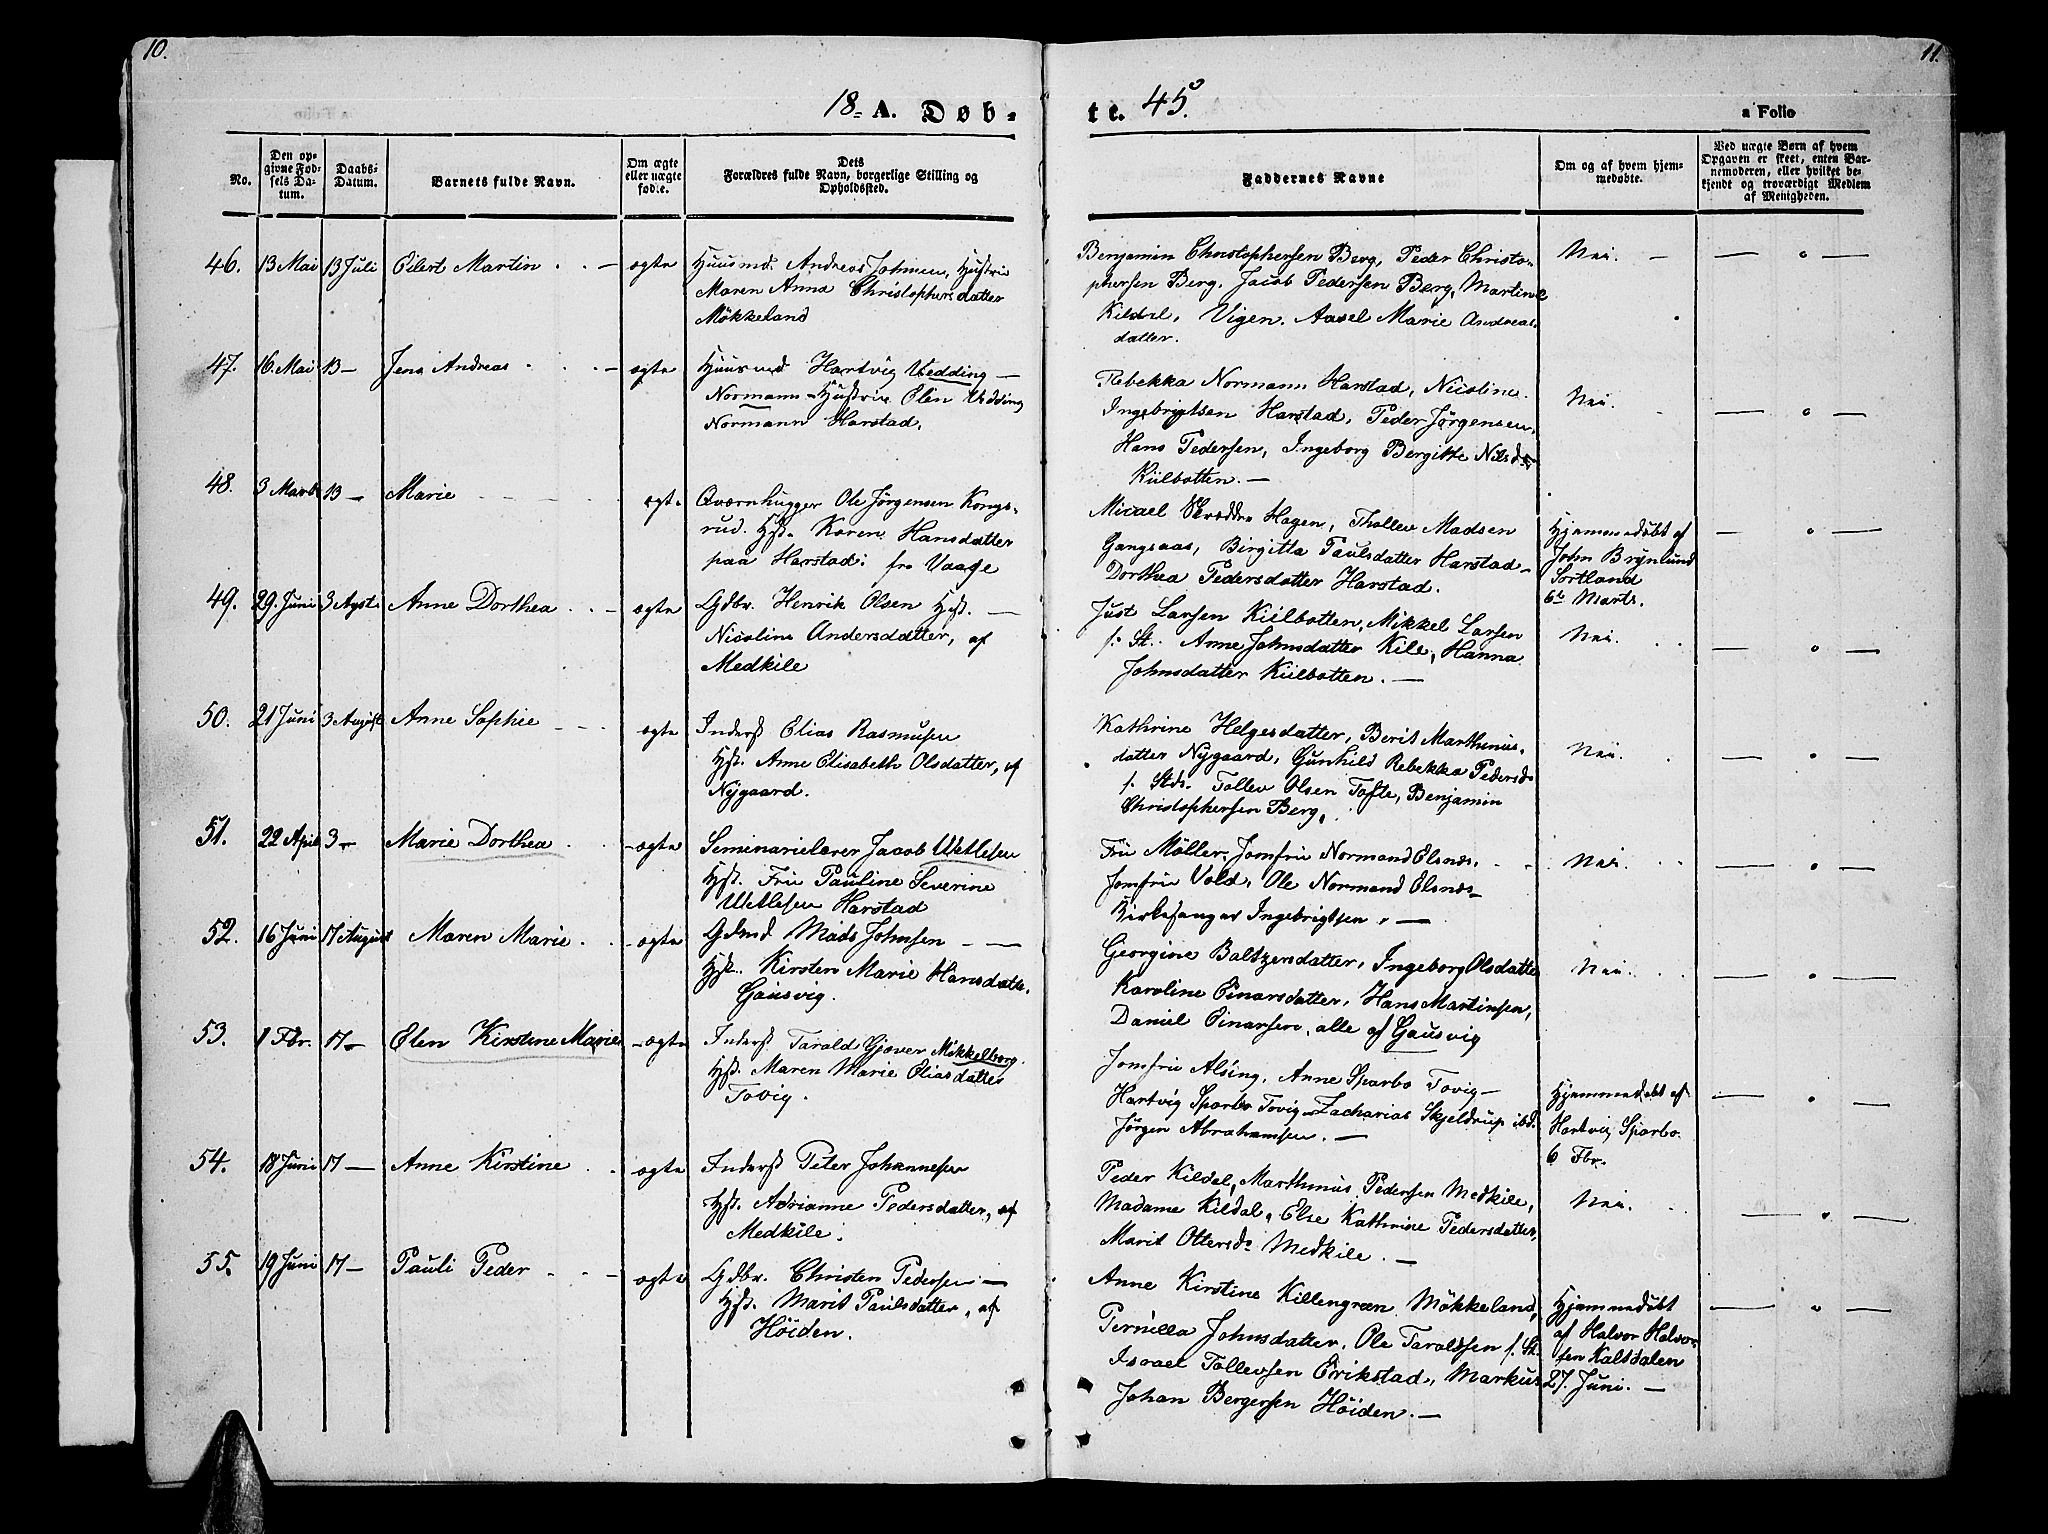 10.
11.
18 A. Døb-
te. 45.
a Folio
No.
Den op-
givne Fød-
sels Da-
tum.
Daabs-
Datum.
Barnets fulde Navn.
Om ægte
eller uægte
født.
Dets
Forældres fulde Navn, borgerlige Stilling og
Opholdssted.
Faddernes Navne
Om og af hvem hjem-
medøbte.
Ved uægte Børn af hvem
Opgaven er skeet, enten Bar-
nemoderen, eller hvilket be-
kjendt og troværdigt Medlem
af Menigheden.
46. 13 Mai 13 Juli Eilert Martin - ægte
Huusmd. Andreas Johnsen, Hustrue
Maren Anna Christophersdatter
Møkkeland
Benjamin Christophersen Berg, Peder Christo-
phersen Berg. Jacob Pedersen Berg, Martine
Kildal, Vigen. Aasel Marie Andreas-
datter.
Nei.
47. 16. Mai 13 — Jens Andreas - ægte
Huusmd Hartvig Wedding —
Normann - Hustrue Elen Wedding
Normann Harstad.
Rebekka Normann Harstad, Nicoline
Ingebrigtsen Harstad, Peder Jørgensen,
Hans Pedersen, Ingeborg Bergitte Nilsd.
Kiilbotten. —
Nei.
48. 3 Marts 13 — Marie ægte
Qværnhugger Ole Jørgensen Kongs-
rud. Hst. Karen Hansdatter
paa Harstad: fra Vaage
Micael Hagen, Thollev Madsen
Gangsaas, Birgitta Paulsdatter Harstad -
Dorthea Pedersdatter Harstad.
Hjemmedøbt af
John Brynlund
Sortland
6te Marts.
49. 29. Juni 3 Agst. Anne Dorthea - ægte
Gdbr. Henrik Olsen Hst. —
Nicoline Andersdatter, af
Medkile
Just Larsen Kiilbotten, Mikkel Larsen
f. St. Anne Johnsdatter Kile, Hanna
Johnsdatter Kiilbotten. —
Nei.
50. 21 Juni 3 August Anne Sophie - ægte
Inderst Elias Rasmusen
Hst. Anne Elisabeth Olsdatter, af
Nygaard.
Kathrine Helgesdatter, Berit Marthinus-
datter Nygaard, Gunhild Rebekka Pedersd.
f. Stds. Tollev Olsen Tofte, Benjamin
Christophersen Berg.
Nei.
51. 22 April 3 — Marie Dorthea - ægte
Seminarielærer Jacob Uetlesen
Hst. Fru Pauline Severine
Uetlesen Harstad
Fru Møller, Jomfru Normand Elsnes.
Jomfru Vold, Ole Normand Elsnes -
Kirkesanger Ingebrigtsen. —
Nei.
52. 16 Juni 17 August Maren Marie - ægte
Gdmd Mads Johnsen — —
Hst. Kirsten Marie Hansdatter.
Gausvig.
Georgine Baltzersdatter, Ingeborg Olsdatter
Karoline Einarsdatter, Hans Martinsen,
Daniel Einarsen, alle af Gausvig
Nei.
53. 1 Fbr. 17 — Elen Kirstine Marie - ægte
Inderst Tarald Gjøver Møkkelborg.
Hst. Maren Marie Eliasdatter
Tovig.
Jomfru Alsing, Anne Sparbo Tovig -
Hartvig Sparbo Tovig - Zacharias Skjeldrup ibd.
Jørgen Abrahamsen. —
Hjemmedøbt af
Hartvig Sparbo
6 Fbr.
54. 18 Juni 17 — Anne Kirstine - ægte
Inderst Peter Johannesen
Hst. Adrianne Pedersdatter, af
Medkile.
Peder Kildal, Marthinus Pedersen Medkile,
Madame Kildal, Else Kathrine Pedersdatter,
Marit Ottersd. Medkile. —
Nei.
55. 19 Juni 17 — Pauli Peder - ægte
Gdbr. Christen Pedersen —
Hst. Marit Paulsdatter, af
Høiden.
Anne Kirstine Killengreen Møkkeland,
Pernilla Johnsdatter, Ole Taraldsen f. St.
Israel Tollevsen Erikstad, Markus
Johan Bergersen Høiden. —
Hjemmedøbt
af Halvor Halvor-
sen Kaltdalen
27. Juni. —